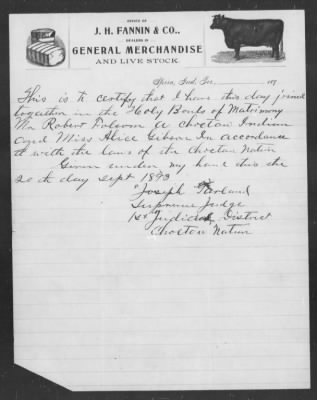 OFFICE OF
J. H. FANNIN & CO.,
DEALERS IN
GENERAL MERCHANDISE
AND LIVE STOCK.
Spiro, Ind. Ter. 189
This is to certify that I have this day joined
together in the Holy Bonds of Matrimony
Mr Robert Folsom a Choctaw Indian
and Miss Alice Gibson In accordance
with the laws of the Choctaw Nation
Given under my hand this the
20th day Sept 1893
Joseph Garland
Supreme Judge
1st Judicial District
Choctaw Nation